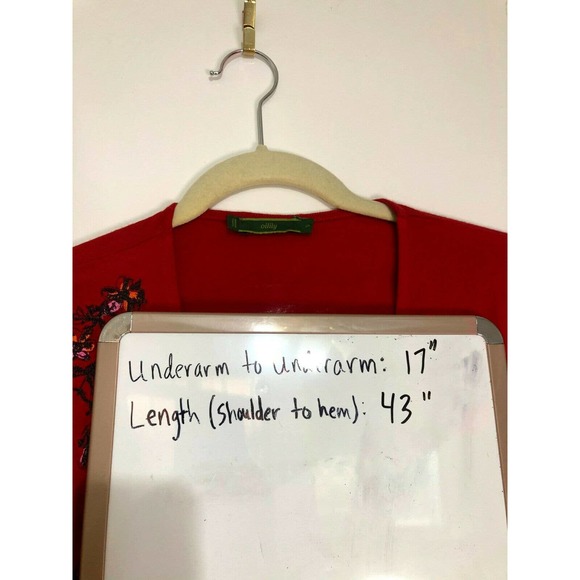 oilily
Underarm to underarm: 17"
Length (shoulder to hem): 43"